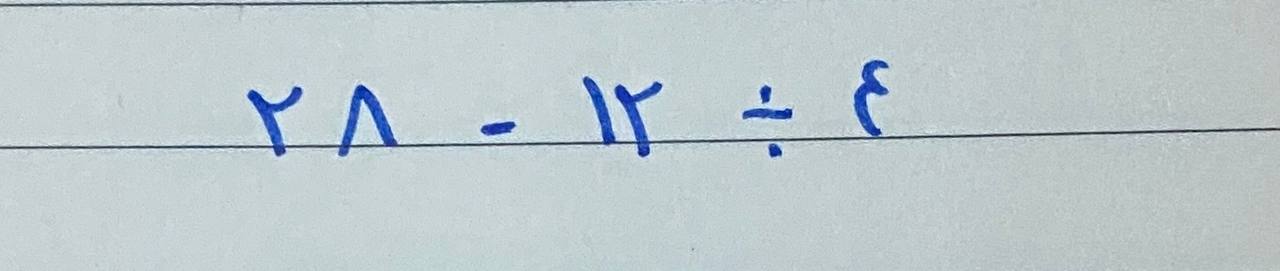 ٢٨ - ١٢ ÷ ٤